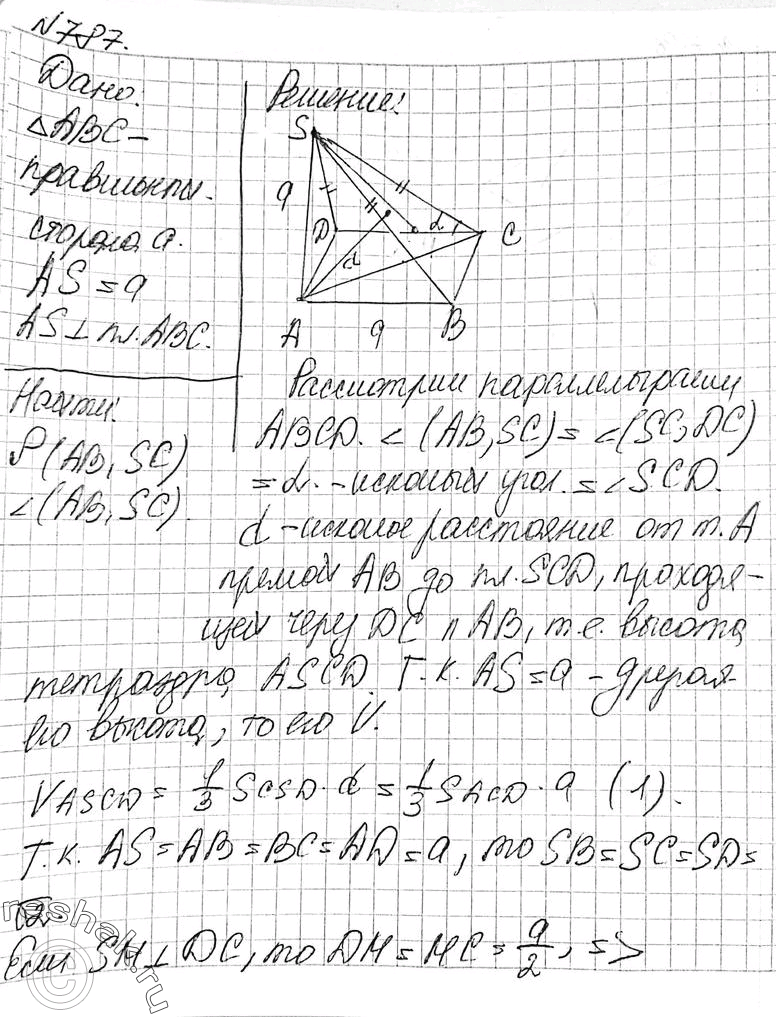 N 787.
Дано:
△ABC –
правильный.
сторона a.
AS = a
AS ⊥ пл. ABC.
Найти:
ρ(AB, SC)
∠(AB, SC).
Решение:
S
a
D
α
C
d
A
a
B
Рассмотрим параллелограмм
ABCD. ∠(AB, SC) = ∠(SC, DC)
= α. – искомый угол. = ∠SCD.
d – искомое расстояние от т. A
прямой AB до пл. SCD, проходя-
щей через DC ∥ AB, т.е. высота
тетраэдра ASCD. Т.к. AS = a – другая
его высота, то его V.
V ASCD = 1/3 S CSD · d = 1/3 S ACD · a (1).
Т.к. AS = AB = BC = AD = a, то SB = SC = SD =
√2
Если SM ⊥ DC, то DM = MC = a/2, =>
reshak.ru
©